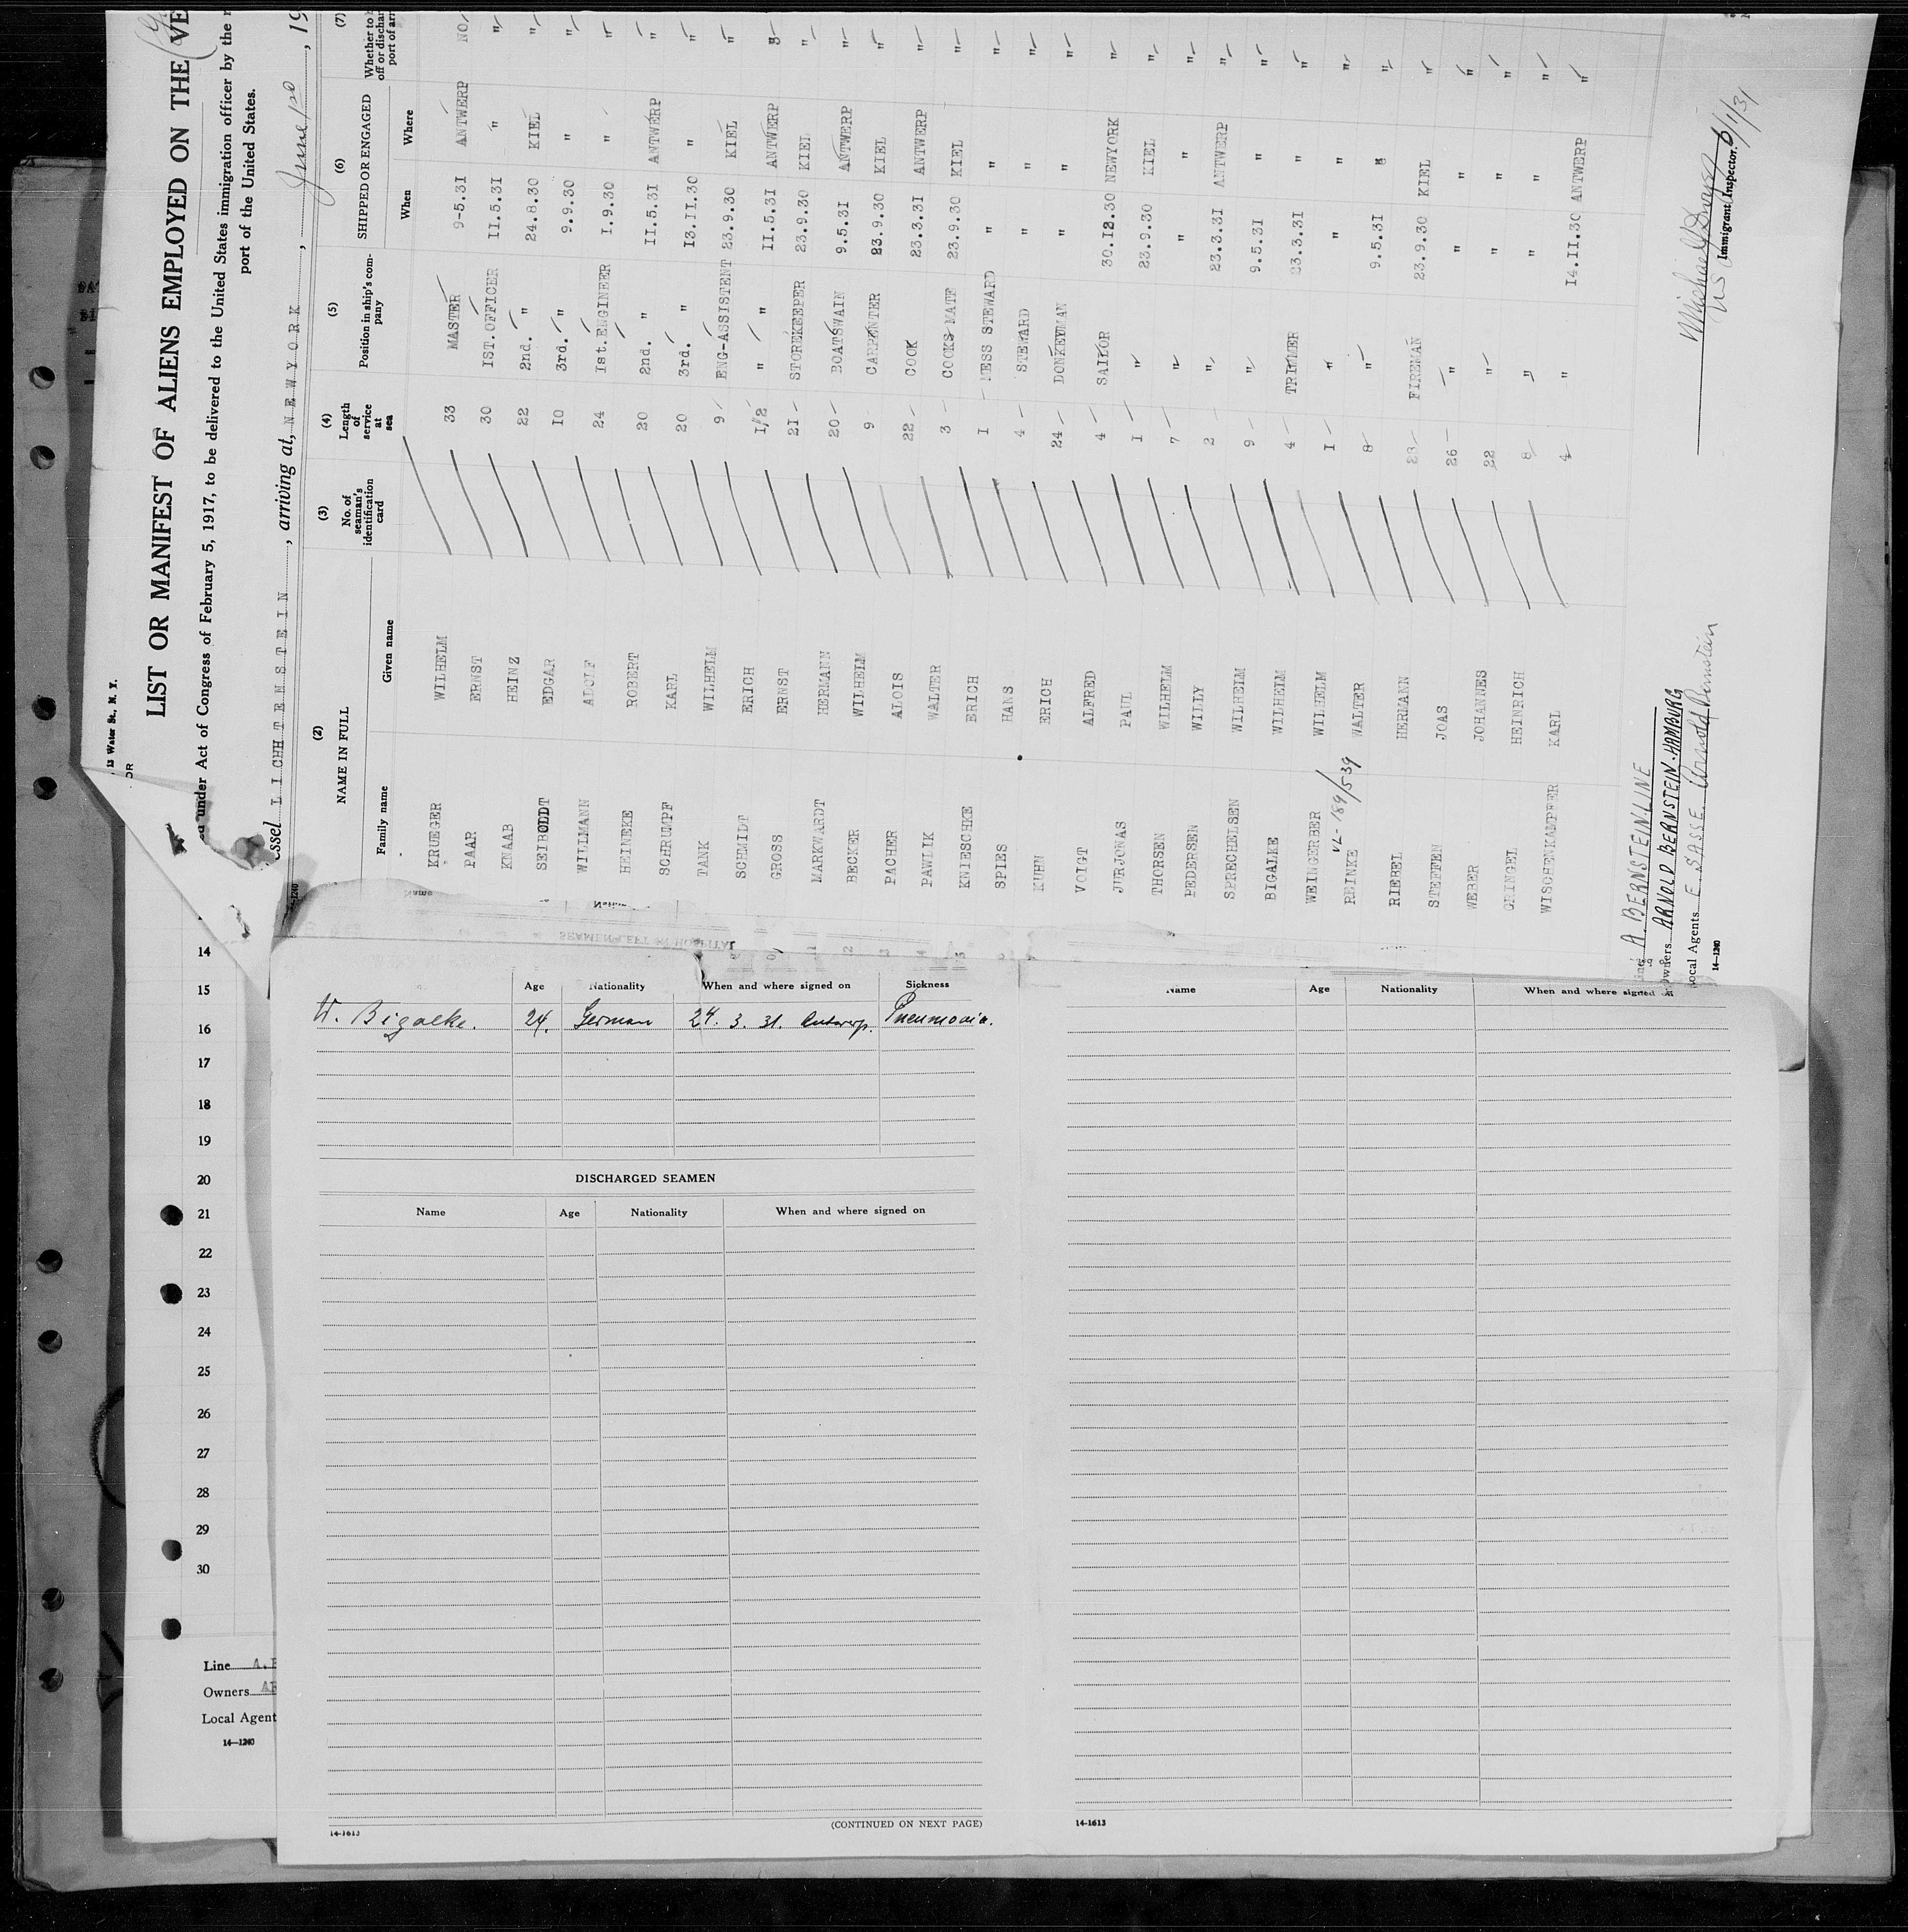 13 Water St., N. Y.
OR
LIST OR MANIFEST OF ALIENS EMPLOYED ON THE VE
ed under Act of Congress of February 5, 1917, to be delivered to the United States immigration officer by the r
port of the United States.
essel LICHTENSTEIN, arriving at, NEWYORK, June 1st, 19
(2) (3) (4) (5) (6) (7)
NAME IN FULL No. of seaman's identification card Length of service at sea Position in ship's company SHIPPED OR ENGAGED Whether to b off or dischar port of arr
Family name Given name When Where
KRUEGER WILHELM 33 MASTER 9-5.31 ANTWERP NO
PAAR ERNST 30 IST.OFFICER II.5.3I " "
KNAAB HEINZ 22 2nd. " 24.8.30 KIEL "
SEIBOLDT EDGAR 10 3rd. " 9.9.30 " "
WILLMANN ADOLF 24 Ist.ENGINEER I.9.30 " "
HEINEKE ROBERT 20 2nd. " II.5.3I ANTWERP "
SCHRUMPF KARL 20 3rd. " I3.II.30 " "
TANK WILHELM 9 ENG-ASSISTENT 23.9.30 KIEL "
SCHMIDT ERICH I/2 " " II.5.3I ANTWERP "
GROSS ERNST 21 STOREKEEPER 23.9.30 KIEL "
MARKWARDT HERMANN 20 BOATSWAIN 9.5.3I ANTWERP "
BECKER WILHELM 9 CARPENTER 23.9.30 KIEL "
PACHER ALOIS 22 COOK 23.3.3I ANTWERP "
PAWLIK WALTER 3 COOKS MATE 23.9.30 KIEL "
KNIESCHKE ERICH I MESS STEWARD " " "
SPIES HANS 4 STEWARD " " "
KUHN ERICH 24 DONKEYMAN " " "
VOIGT ALFRED 4 SAILOR 30.12.30 NEWYORK "
JURJONAS PAUL I " 23.9.30 KIEL "
THORSEN WILHELM 7 " " " "
PEDERSEN WILLY 2 " 23.3.3I ANTWERP "
SPRECHELSEN WILHELM 9 " 9.5.3I " "
BIGALKE WILHELM 4 TRIMMER 23.3.3I " "
WEINGERBER WILHELM I " " " "
REINKE VL-189/539 WALTER 8 " 9.5.3I " "
RIEBEL HERMANN 23 FIREMAN 23.9.30 KIEL "
STEFFEN JOAS 26 " " " "
WEBER JOHANNES 22 " " " "
GRINGEL HEINRICH 8 " " " "
WISCHENKAMPPER KARL 4 " I4.II.30 ANTWERP "
Line A. BERNSTEIN-LINE
Owners ARNOLD BERNSTEIN-HAMBURG
Local Agents E. SASSE. Arnold Bernstein
14—1240
Immigrant Inspector. 6/1/31
SEAMEN LEFT IN HOSPITAL
Age Nationality When and where signed on Sickness
W. Bigalke. 24. German 24. 3. 31. Antwerp. Pneumonia.
DISCHARGED SEAMEN
Name Age Nationality When and where signed on
(CONTINUED ON NEXT PAGE)
14-1613
Name Age Nationality When and where signed on
14-1613
14
15
16
17
18
19
20
21
22
23
24
25
26
27
28
29
30
Line A.B
Owners AR
Local Agent
14—1240